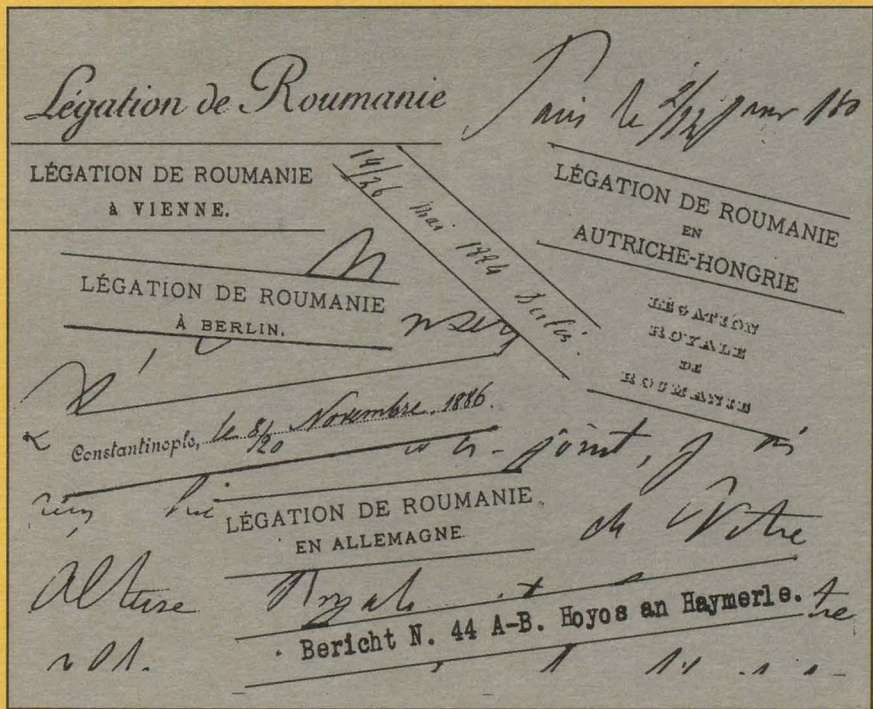 Légation de Roumanie
Paris le 2/12
LÉGATION DE ROUMANIE
à VIENNE.
14/26 mai 1884 Berlin.
LÉGATION DE ROUMANIE
EN
AUTRICHE-HONGRIE
LÉGATION DE ROUMANIE
À BERLIN.
LÉGATION
ROYALE
DE
ROUMANIE
Constantinople, le 8/20 Novembre 1886.
ci-joint, j
LÉGATION DE ROUMANIE
EN ALLEMAGNE
de Votre
Altesse Royale
Bericht N. 44 A-B. Hoyos an Haymerle.